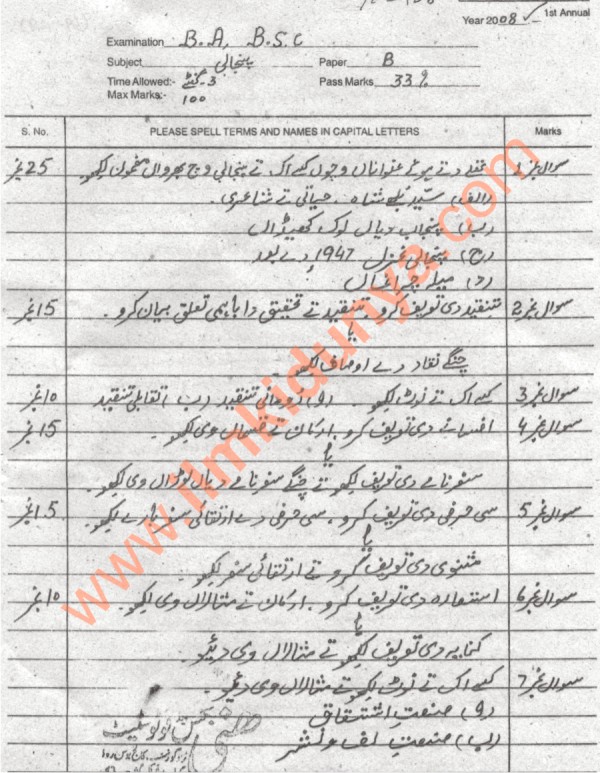 Year 2008 1st Annual
Examination B.A, B.S.C
Subject پنجابی Paper B
Time Allowed:- 3 گھنٹے Pass Marks 33%
Max Marks:- 100
S. No. PLEASE SPELL TERMS AND NAMES IN CAPITAL LETTERS Marks
سوال نمبر 1 تھلے دتے ہوئے عنواناں وچوں کسے اک تے پنجابی وچ بھرواں مضمون لکھو۔ 25 نمبر
(الف) سید بلھے شاہ۔ حیاتی تے شاعری۔
(ب) پنجاب دیاں لوک کھیڈاں
(ج) پنجابی غزل 1947ء دے بعد
(د) میلہ چراغاں
سوال نمبر 2 تنقید دی تعریف کرو۔ تنقید تے تحقیق دا باہمی تعلق بیان کرو۔ 15 نمبر
یا
چنگے نقاد دے اوصاف لکھو۔
سوال نمبر 3 کسے اک تے نوٹ لکھو۔ (و) رومانی تنقید (ب) تقابلی تنقید 10 نمبر
سوال نمبر 4 افسانے دی تعریف کرو، ارکان تے قسماں وی لکھو۔ 15 نمبر
یا
سفرنامے دی تعریف لکھو تے چنگے سفرنامے دیاں لوڑاں وی لکھو۔
سوال نمبر 5 سی حرفی دی تعریف کرو، سی حرفی دے ارتقائی سفر بارے لکھو۔ 15 نمبر
یا
مثنوی دی تعریف کرو تے ارتقائی سفر لکھو۔
سوال نمبر 6 استعارہ دی تعریف کرو۔ ارکان تے مثالاں وی لکھو۔ 10 نمبر
یا
کنایہ دی تعریف لکھو تے مثالاں وی دیو۔
سوال نمبر 7 کسے اک تے نوٹ لکھو تے مثالاں وی دیو۔
(و) صنعت اشتقاق
(ب) صنعت لف و نشر
www.ilmkidunya.com